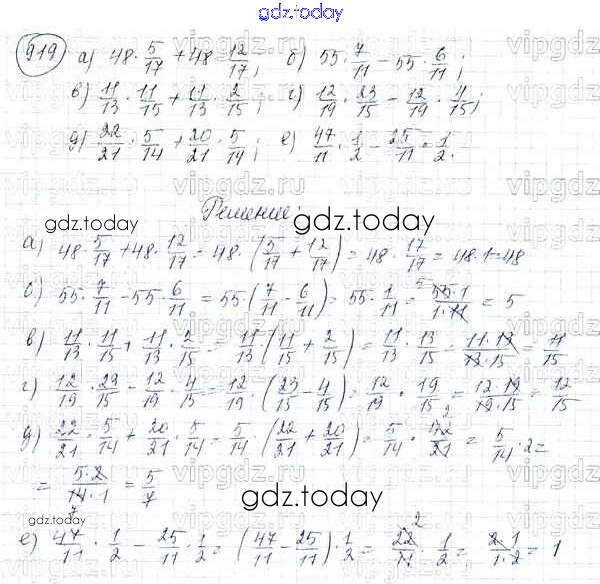 gdz.today
919 а) 48 · 5/17 + 48 · 12/17; б) 55 · 7/11 − 55 · 6/11;
в) 11/13 · 11/15 + 11/13 · 2/15; г) 12/19 · 23/15 − 12/19 · 4/15;
д) 22/21 · 5/14 + 20/21 · 5/14; е) 47/11 · 1/2 − 25/11 · 1/2.
Решение:
gdz.today gdz.today
а) 48 · 5/17 + 48 · 12/17 = 48 · (5/17 + 12/17) = 48 · 17/17 = 48 · 1 = 48
б) 55 · 7/11 − 55 · 6/11 = 55 · (7/11 − 6/11) = 55 · 1/11 = 5 55·1/1·11 = 5
в) 11/13 · 11/15 + 11/13 · 2/15 = 11/13 (11/15 + 2/15) = 11/13 · 13/15 = 11·13/13·15 = 11/15
г) 12/19 · 23/15 − 12/19 · 4/15 = 12/19 · (23/15 − 4/15) = 12/19 · 19/15 = 12·19/19·15 = 12/15
д) 22/21 · 5/14 + 20/21 · 5/14 = 5/14 · (22/21 + 20/21) = 5/14 · 42/21 2 = 5/14 · 2 =
= 5·2/14·1 7 = 5/7
gdz.today
gdz.today
е) 47/11 · 1/2 − 25/11 · 1/2 = (47/11 − 25/11) · 1/2 = 22/11 2 · 1/2 = 2·1/1·2 = 1
vipgdz.ru